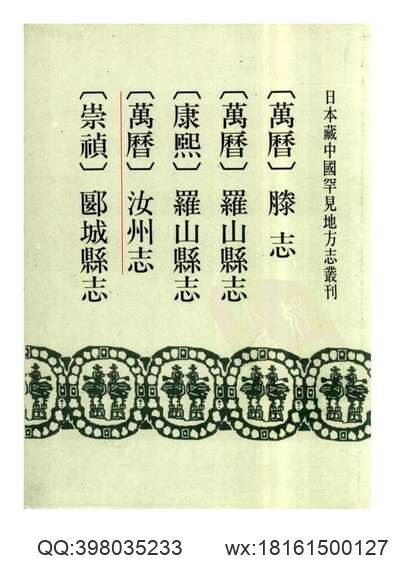 日本藏中國罕見地方志叢刊
〔萬曆〕滕志
〔萬曆〕羅山縣志
〔康熙〕羅山縣志
〔萬曆〕汝州志
〔崇禎〕郾城縣志
QQ:398035233 wx:18161500127